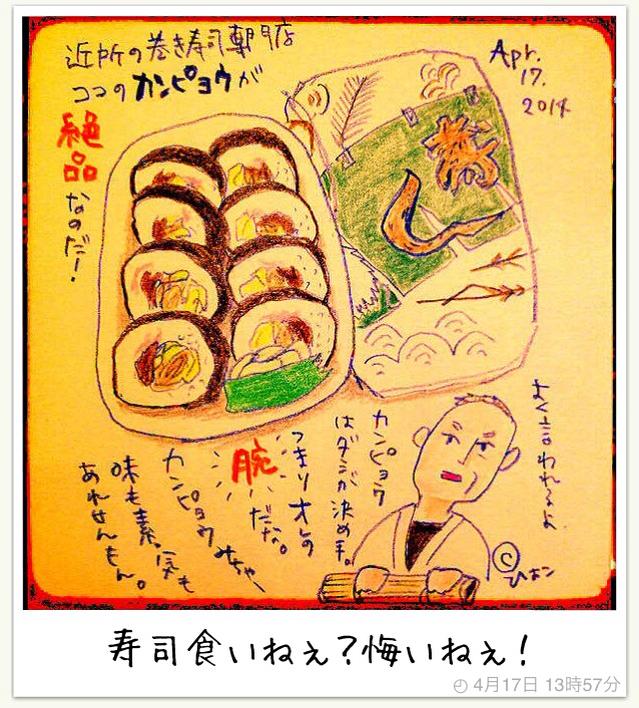 近所の巻き寿司専門店
ココのカンピョウが
絶品
なのだ！
Apr.
17.
2014.
よく言われるよ。
カンピョウ
はダシが決め手。
つまりオレの
腕だな。
カンピョウみちゃ
味も素っ気も
あれせんもん。
©ひョン
寿司食いねぇ？悔いねぇ！
4月17日 13時57分